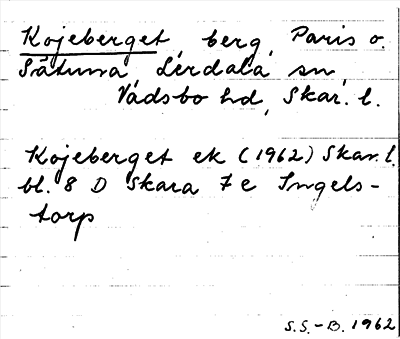 Kojeberget, berg, Paris o.
Såtuna, Lerdala sn,
Vadsbo hd, Skar. l.
Kojeberget ek (1962) Skar. l.
bl. 8 D Skara 7 e Ingels-
torp
S.S.-B. 1962